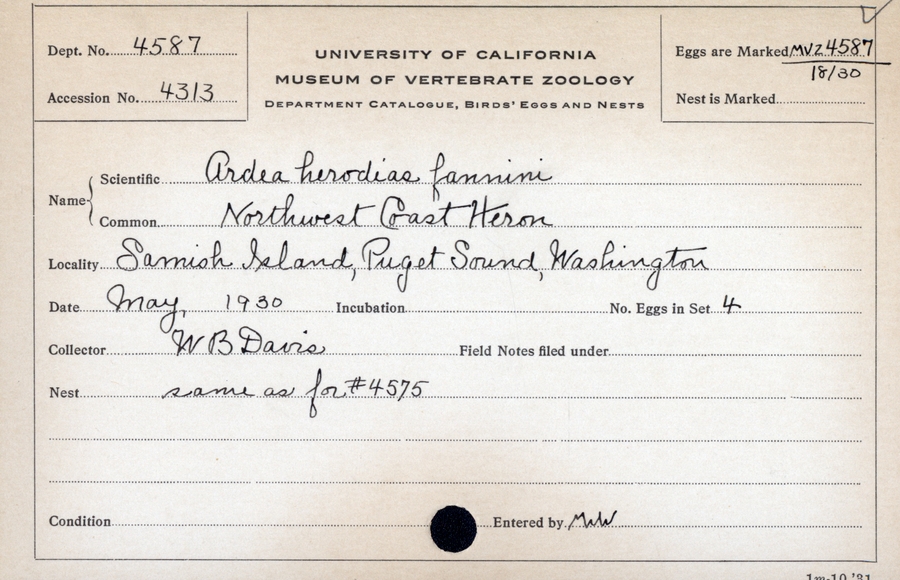 Dept. No. 4587
Accession No. 4313
UNIVERSITY OF CALIFORNIA
MUSEUM OF VERTEBRATE ZOOLOGY
DEPARTMENT CATALOGUE, BIRDS' EGGS AND NESTS
Eggs are Marked MVZ4587
18/30
Nest is Marked
Name
Scientific Ardea herodias fannini
Common Northwest Coast Heron
Locality Samish Island, Puget Sound, Washington
Date May, 1930 Incubation No. Eggs in Set 4
Collector W B Davis Field Notes filed under
Nest same as for #4575
Condition Entered by
1m-10,'31